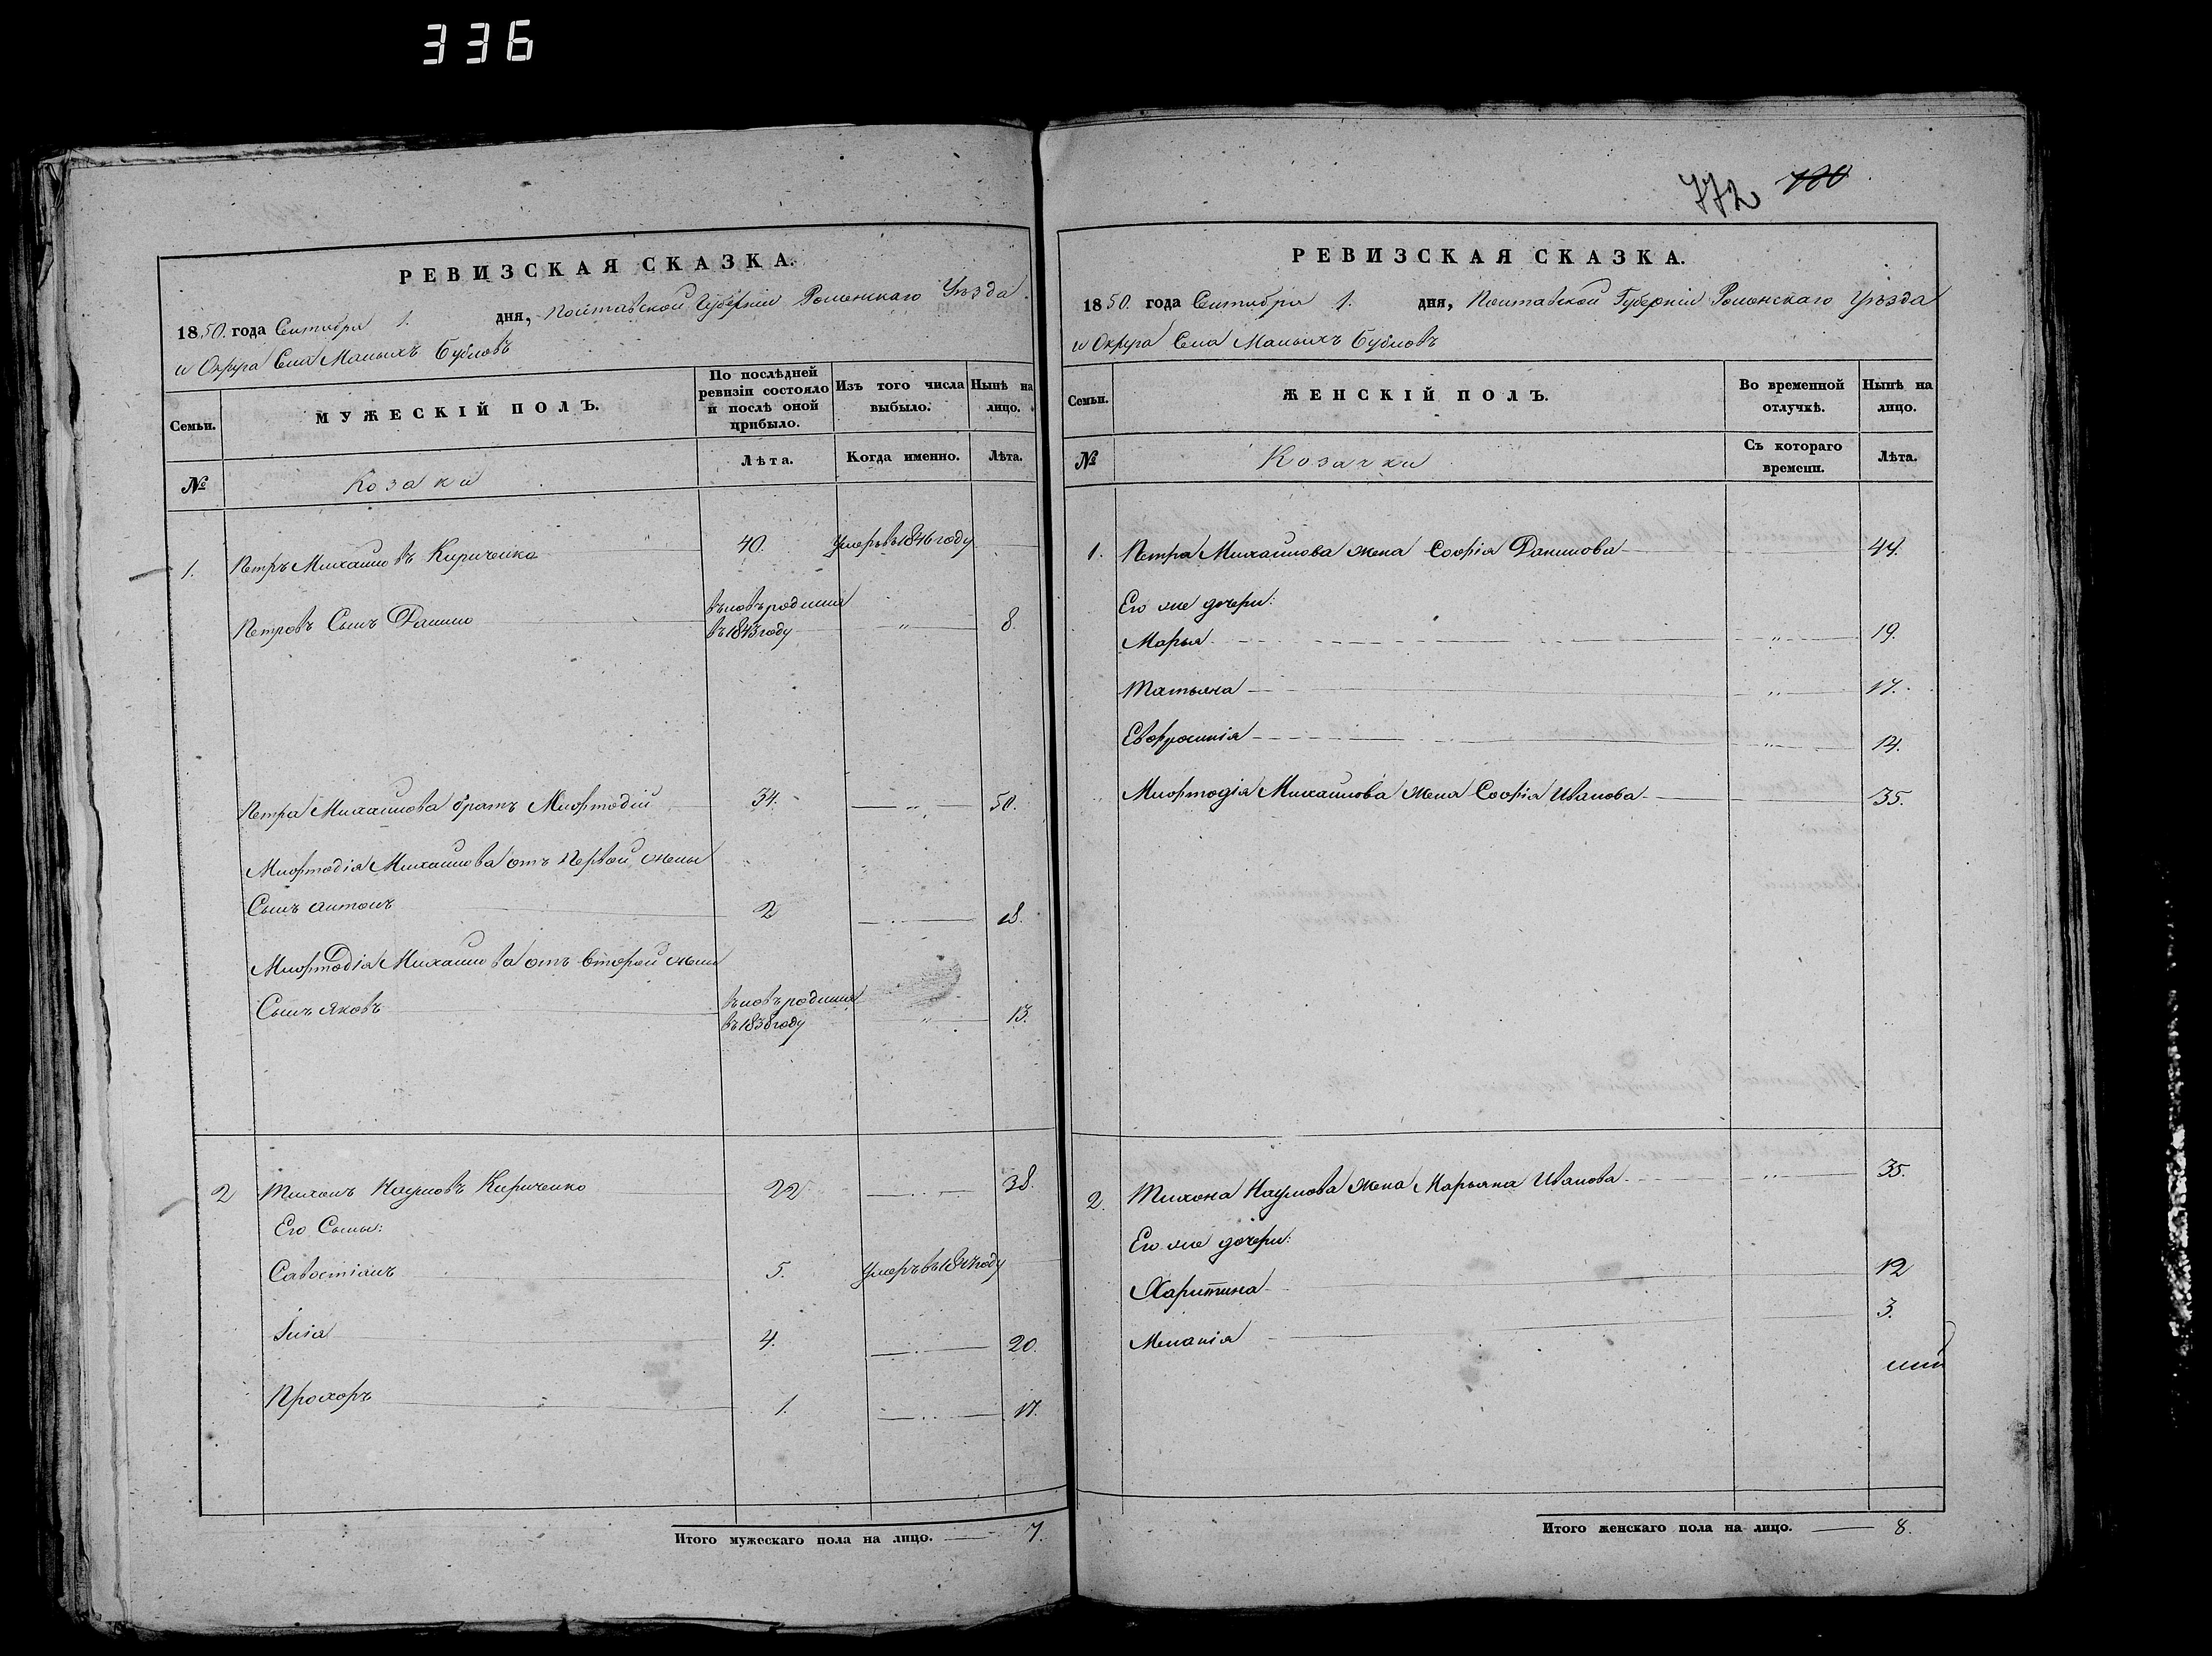 336
РЕВИЗСКАЯ СКАЗКА.
1850. года Сентября 1. дня, Полтавской Губерніи Роменскаго Уѣзда
и Округа Села Малыхъ Бубновъ
Семьи.
МУЖЕСКІЙ ПОЛЪ.
По послѣдней ревизіи состояло и послѣ оной прибыло.
Изъ того числа выбыло.
Нынѣ на лицо.
№
Козаки
Лѣта.
Когда именно.
Лѣта.
1. Петръ Михаиловъ Кириченко 40. Умеръ въ 1846 году
Петровъ Сынъ Данило вновь родился въ 1843 году " 8.
Петра Михаилова братъ Мефтодій 34. " 50.
Мефтодія Михаилова отъ первой жены
Сынъ Антонъ 2 18.
Мефтодія Михаилова отъ второй жены
Сынъ Яковъ вновь родился въ 1838 году " 13.
2 Тихонъ Наумовъ Кириченко 22 38.
Его Сыны:
Савостіанъ 5. Умеръ въ году
Илія 4. 20.
Прохоръ 1. 17.
Итого мужескаго пола на лицо. 7.
772 780
РЕВИЗСКАЯ СКАЗКА.
1850. года Сентября 1. дня, Полтавской Губерніи Роменскаго Уѣзда
и Округа Села Малыхъ Бубновъ
Семьи.
ЖЕНСКІЙ ПОЛЪ.
Во временной отлучкѣ.
Нынѣ на лицо.
№
Козачки
Съ котораго времени.
Лѣта.
1. Петра Михаилова жена Софія Данилова 44.
Его же дочери:
Марья " 19.
Татьяна " 17.
Евфросинія " 14.
Мефтодія Михаилова жена Софія Иванова 35.
2. Тихона Наумова жена Марьяна Иванова " 35.
Его же дочери:
Харитина 12
Меланія 3.
Итого женскаго пола на лицо. 8.